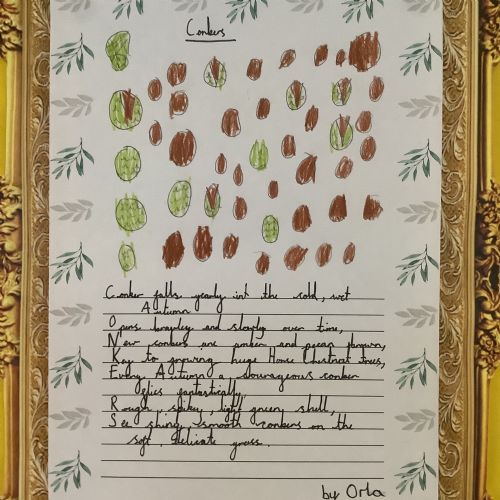 Conkers
Conker falls yearly into the cold, wet
Autumn
Opens bravely and slowly over time,
New conkers are amber and pecan brown,
Key to growing huge Horse Chestnut trees,
Every Autumn a courageous conker
flies fantastically
Rough, spikey, light green shell,
See shiny, smooth conkers on the
soft, delicate grass.
by Orla